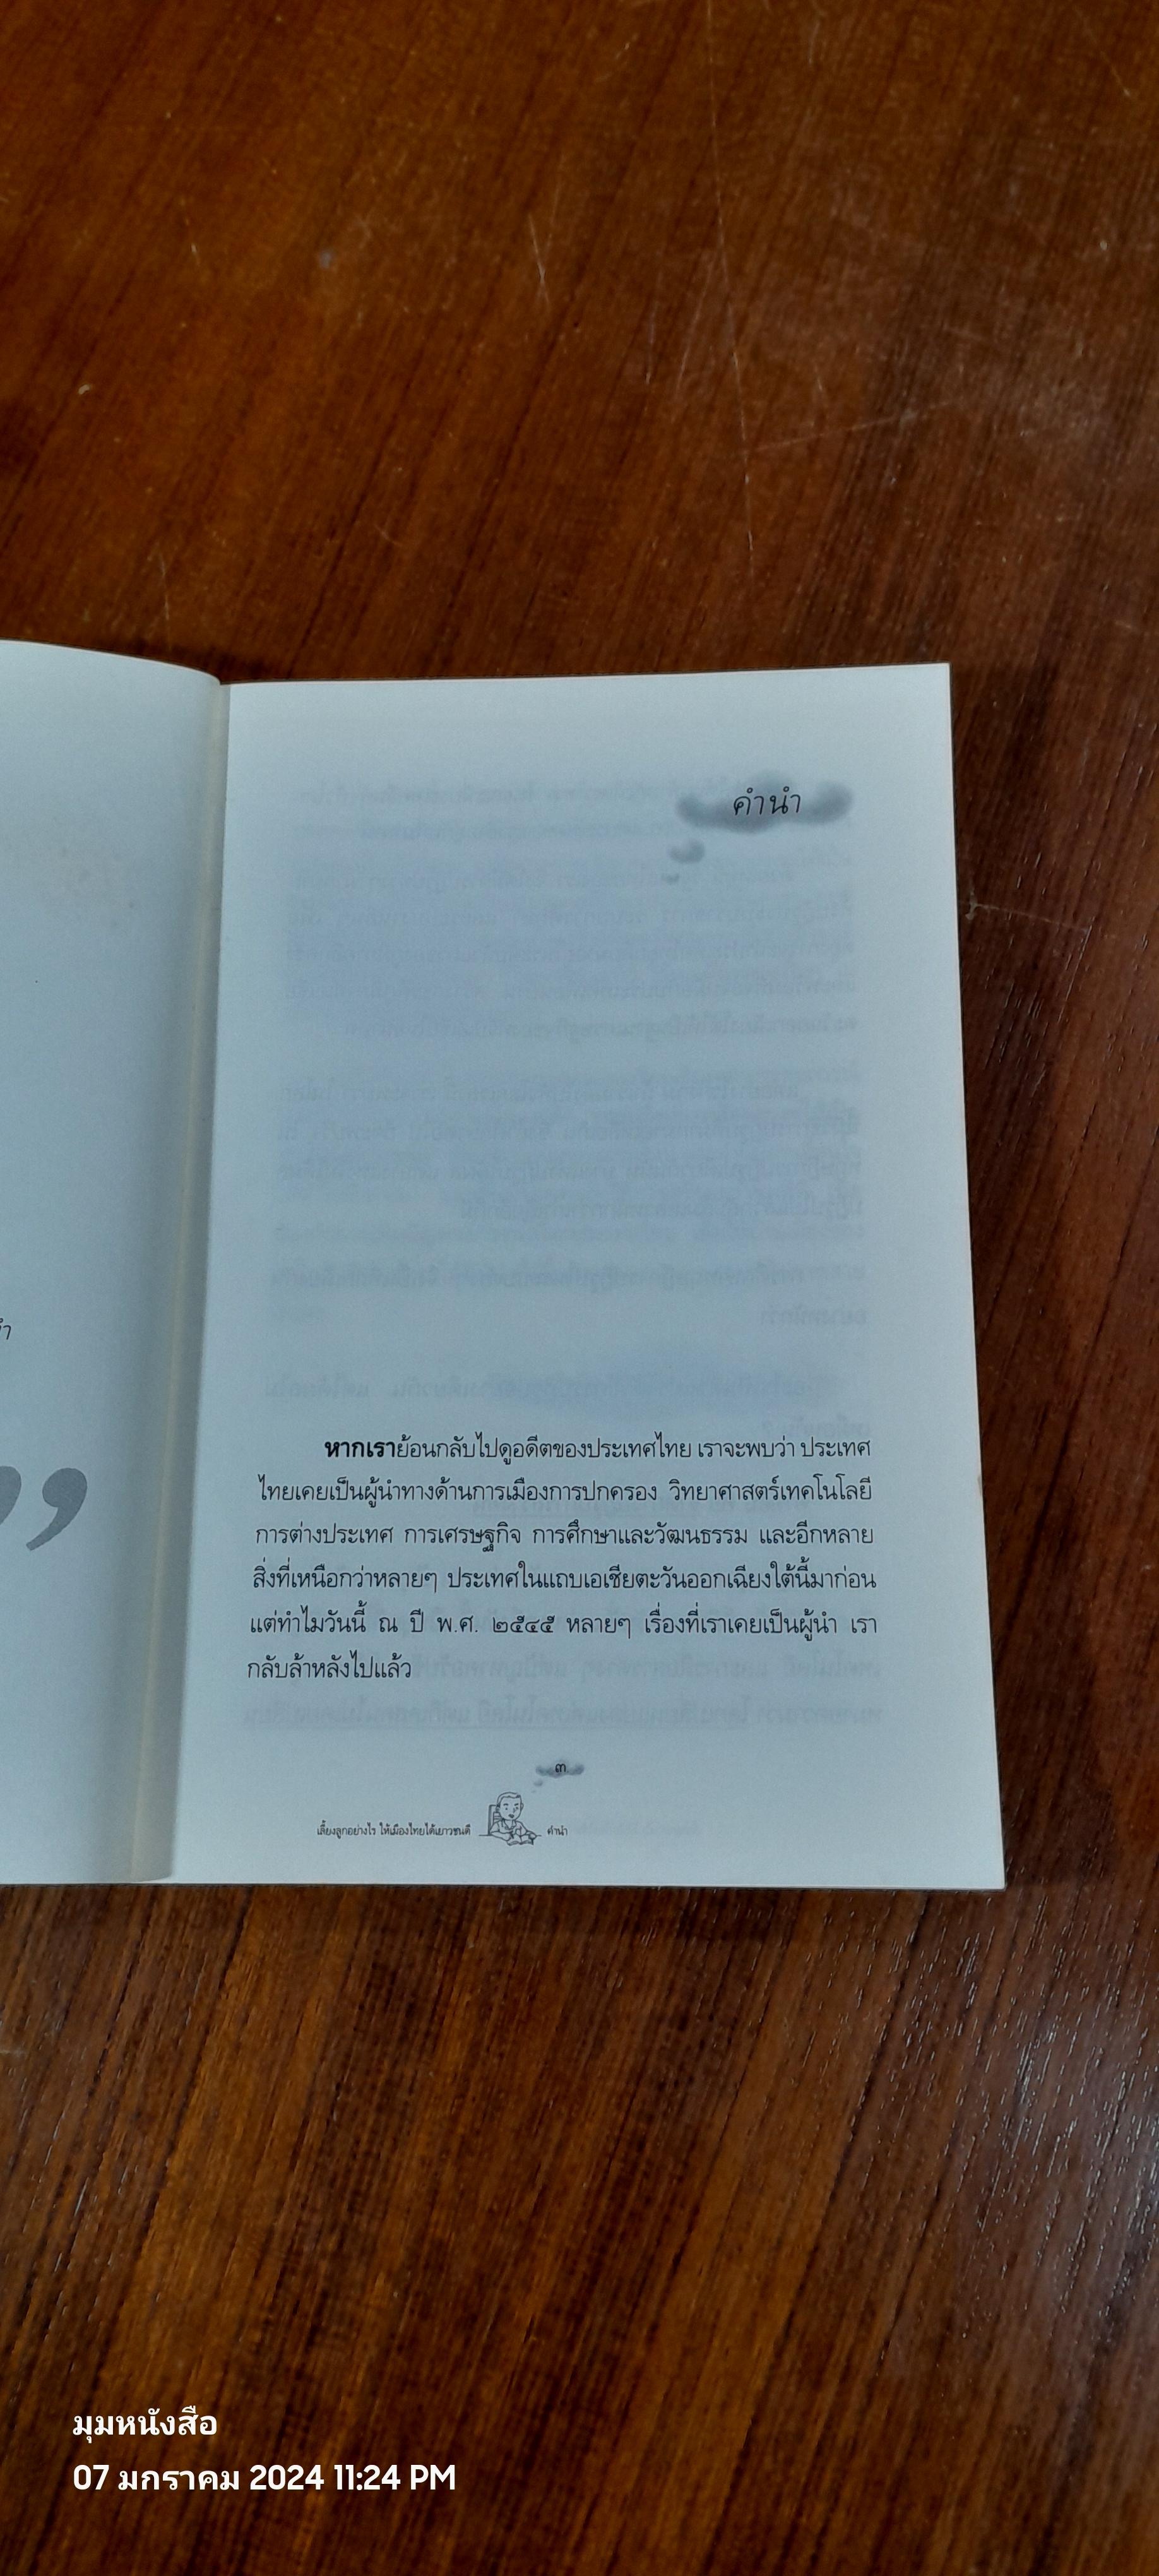 คำนำ
หากเราย้อนกลับไปดูอดีตของประเทศไทย เราจะพบว่า ประเทศ
ไทยเคยเป็นผู้นำทางด้านการเมืองการปกครอง วิทยาศาสตร์เทคโนโลยี
การต่างประเทศ การเศรษฐกิจ การศึกษาและวัฒนธรรม และอีกหลาย
สิ่งที่เหนือกว่าหลายๆ ประเทศในแถบเอเชียตะวันออกเฉียงใต้นี้มาก่อน
แต่ทำไมวันนี้ ณ ปี พ.ศ. ๒๕๔๕ หลายๆ เรื่องที่เราเคยเป็นผู้นำ เรา
กลับล้าหลังไปแล้ว
๓
เลี้ยงลูกอย่างไร ให้เมืองไทยได้เยาวชนดี คำนำ
มุมหนังสือ
07 มกราคม 2024 11:24 PM